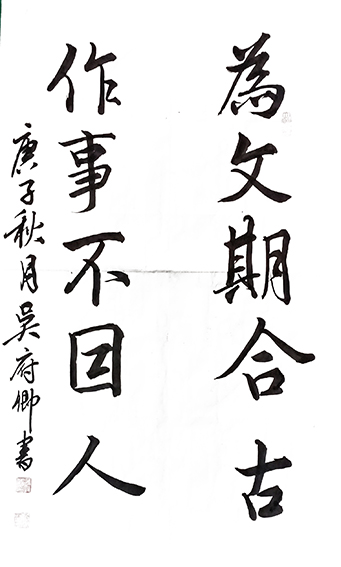 為文期合古
作事不囙人
庚子秋月吴府卿書